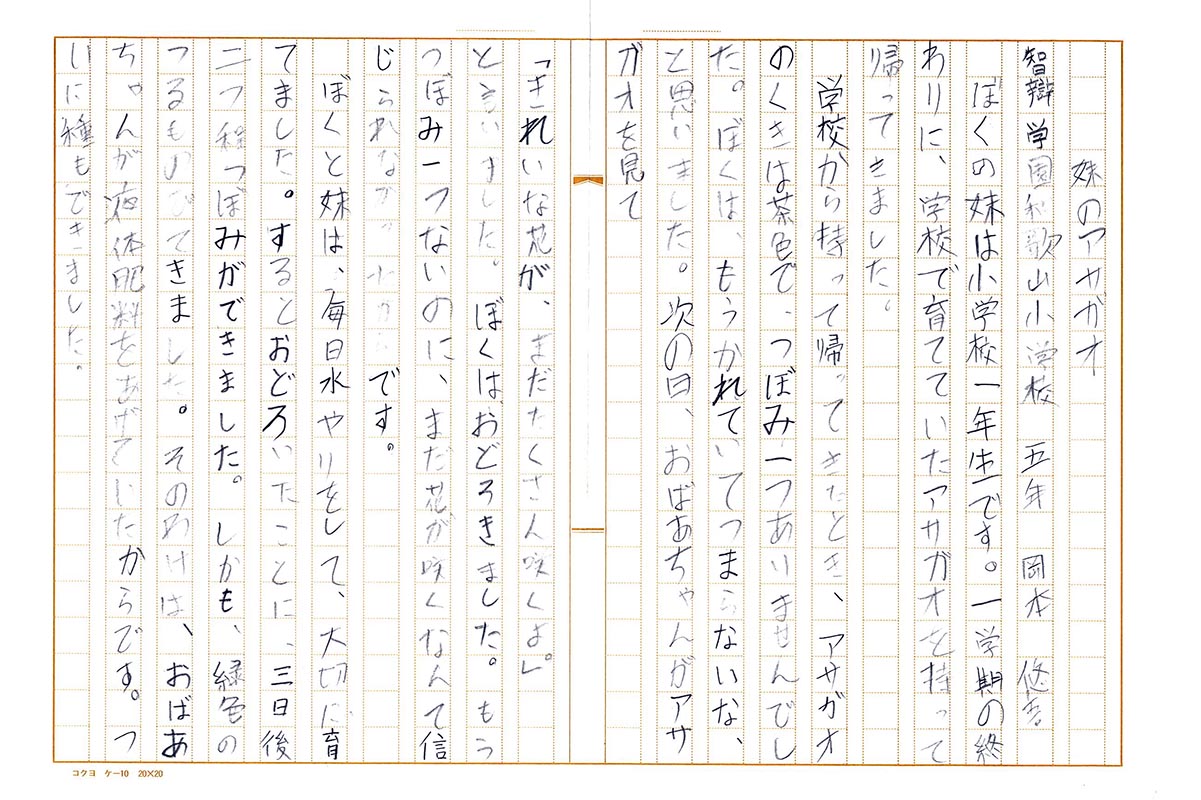 妹のアサガオ
智辯学園和歌山小学校　五年　岡本　悠吾
ぼくの妹は小学校一年生です。一学期の終
わりに、学校で育てていたアサガオを持って
帰ってきました。
学校から持って帰ってきたとき、アサガオ
のくきは茶色で、つぼみ一つありませんでし
た。ぼくは、もうかれていてつまらないな、
と思いました。次の日、おばあちゃんがアサ
ガオを見て
「きれいな花が、まだたくさん咲くよ。」
と言いました。ぼくはおどろきました。もう
つぼみ一つないのに、まだ花が咲くなんて信
じられなかったからです。
ぼくと妹は、毎日水やりをして、大切に育
てました。するとおどろいたことに、三日後
二つ程つぼみができました。しかも、緑色の
つるものびてきました。そのわけは、おばあ
ちゃんが液体肥料をあげてじたからです。つ
いに種もできました。
コクヨ　ケー10　20×20